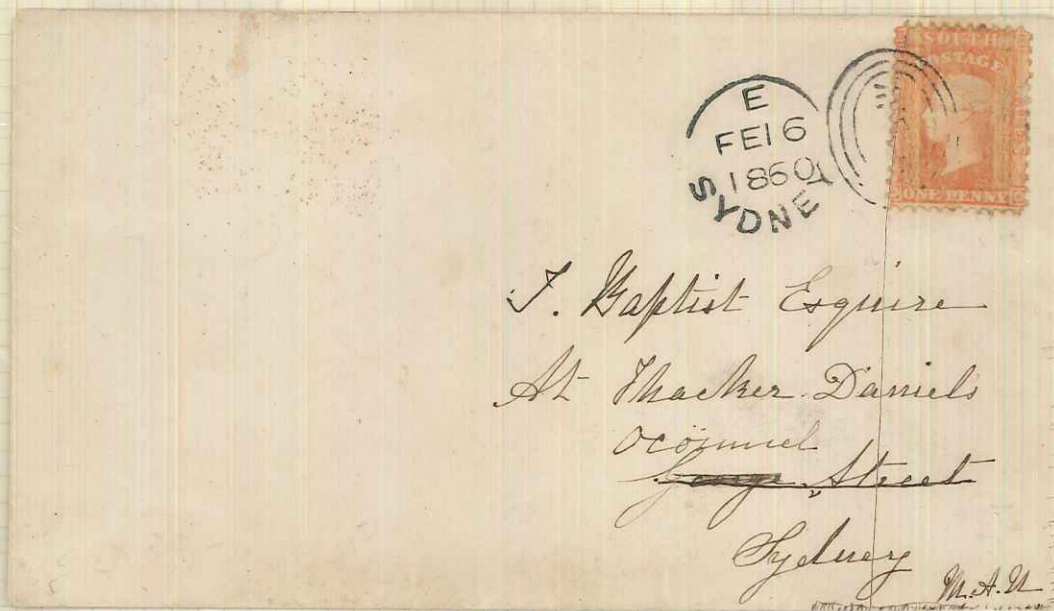 SOUTH
POSTAGE
ONE PENNY
E
FE16
1860
SYDNEY
J. Baptist Esquire
At Thacker Daniels
oconnel
George Street
Sydney